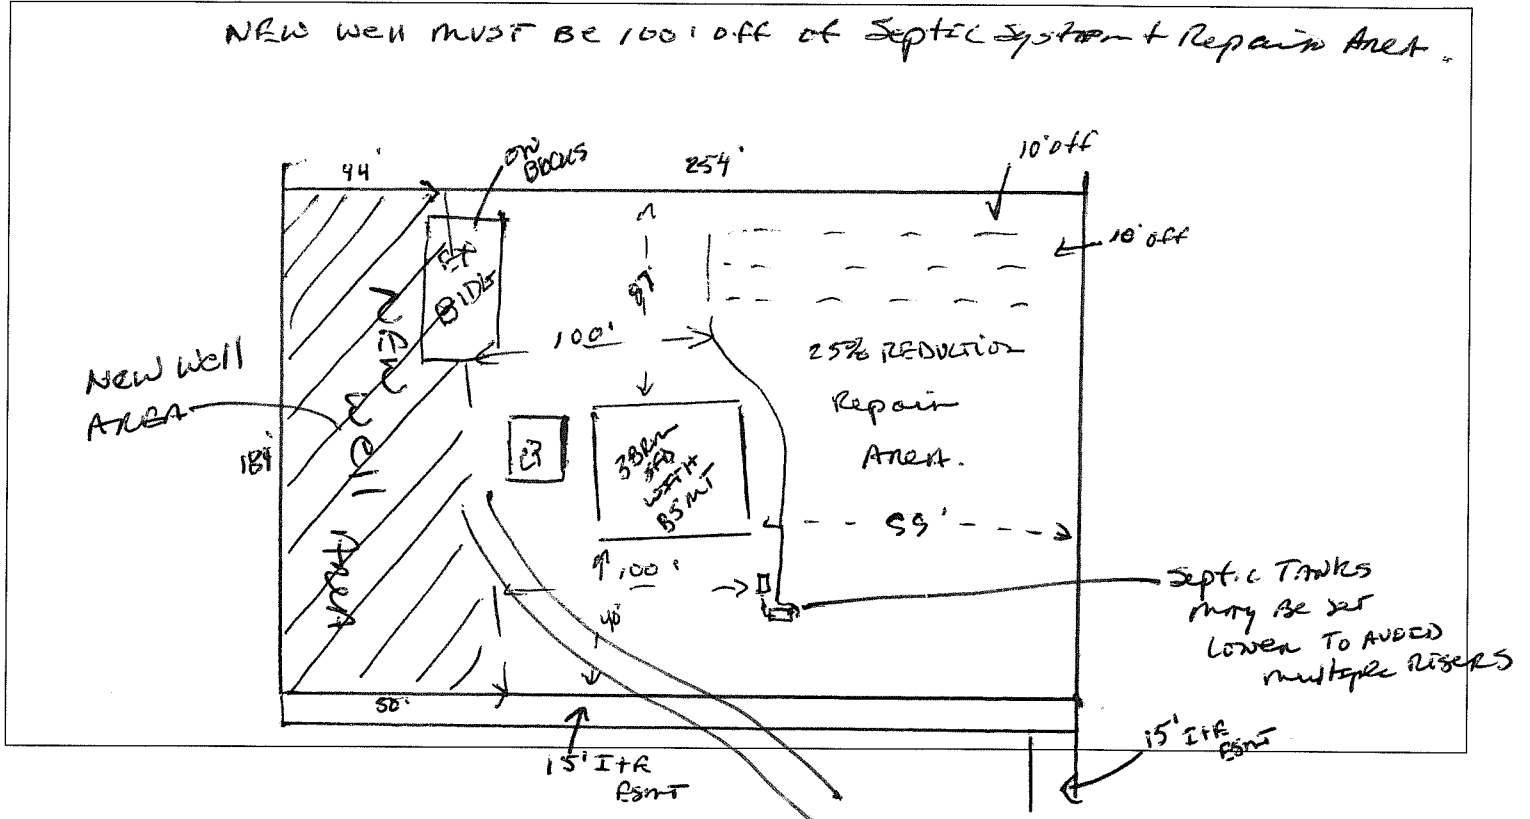 NEW Well MUST BE 100' off of Septic System + Repair Area.
44'
ON
BLOCKS
254'
10' off
10' off
EX
BlDG
87'
100'
25% REDUCTION
Repair
Area.
NEW Well
AREA
189'
New Well Area
3 BRM
SFD
WITH
BSMT
59'
100'
40'
Septic TANKS
may Be set
LOWER TO AVOID
multiple RISERS
50'
15' I+E
ESMT
15' I+E
ESMT